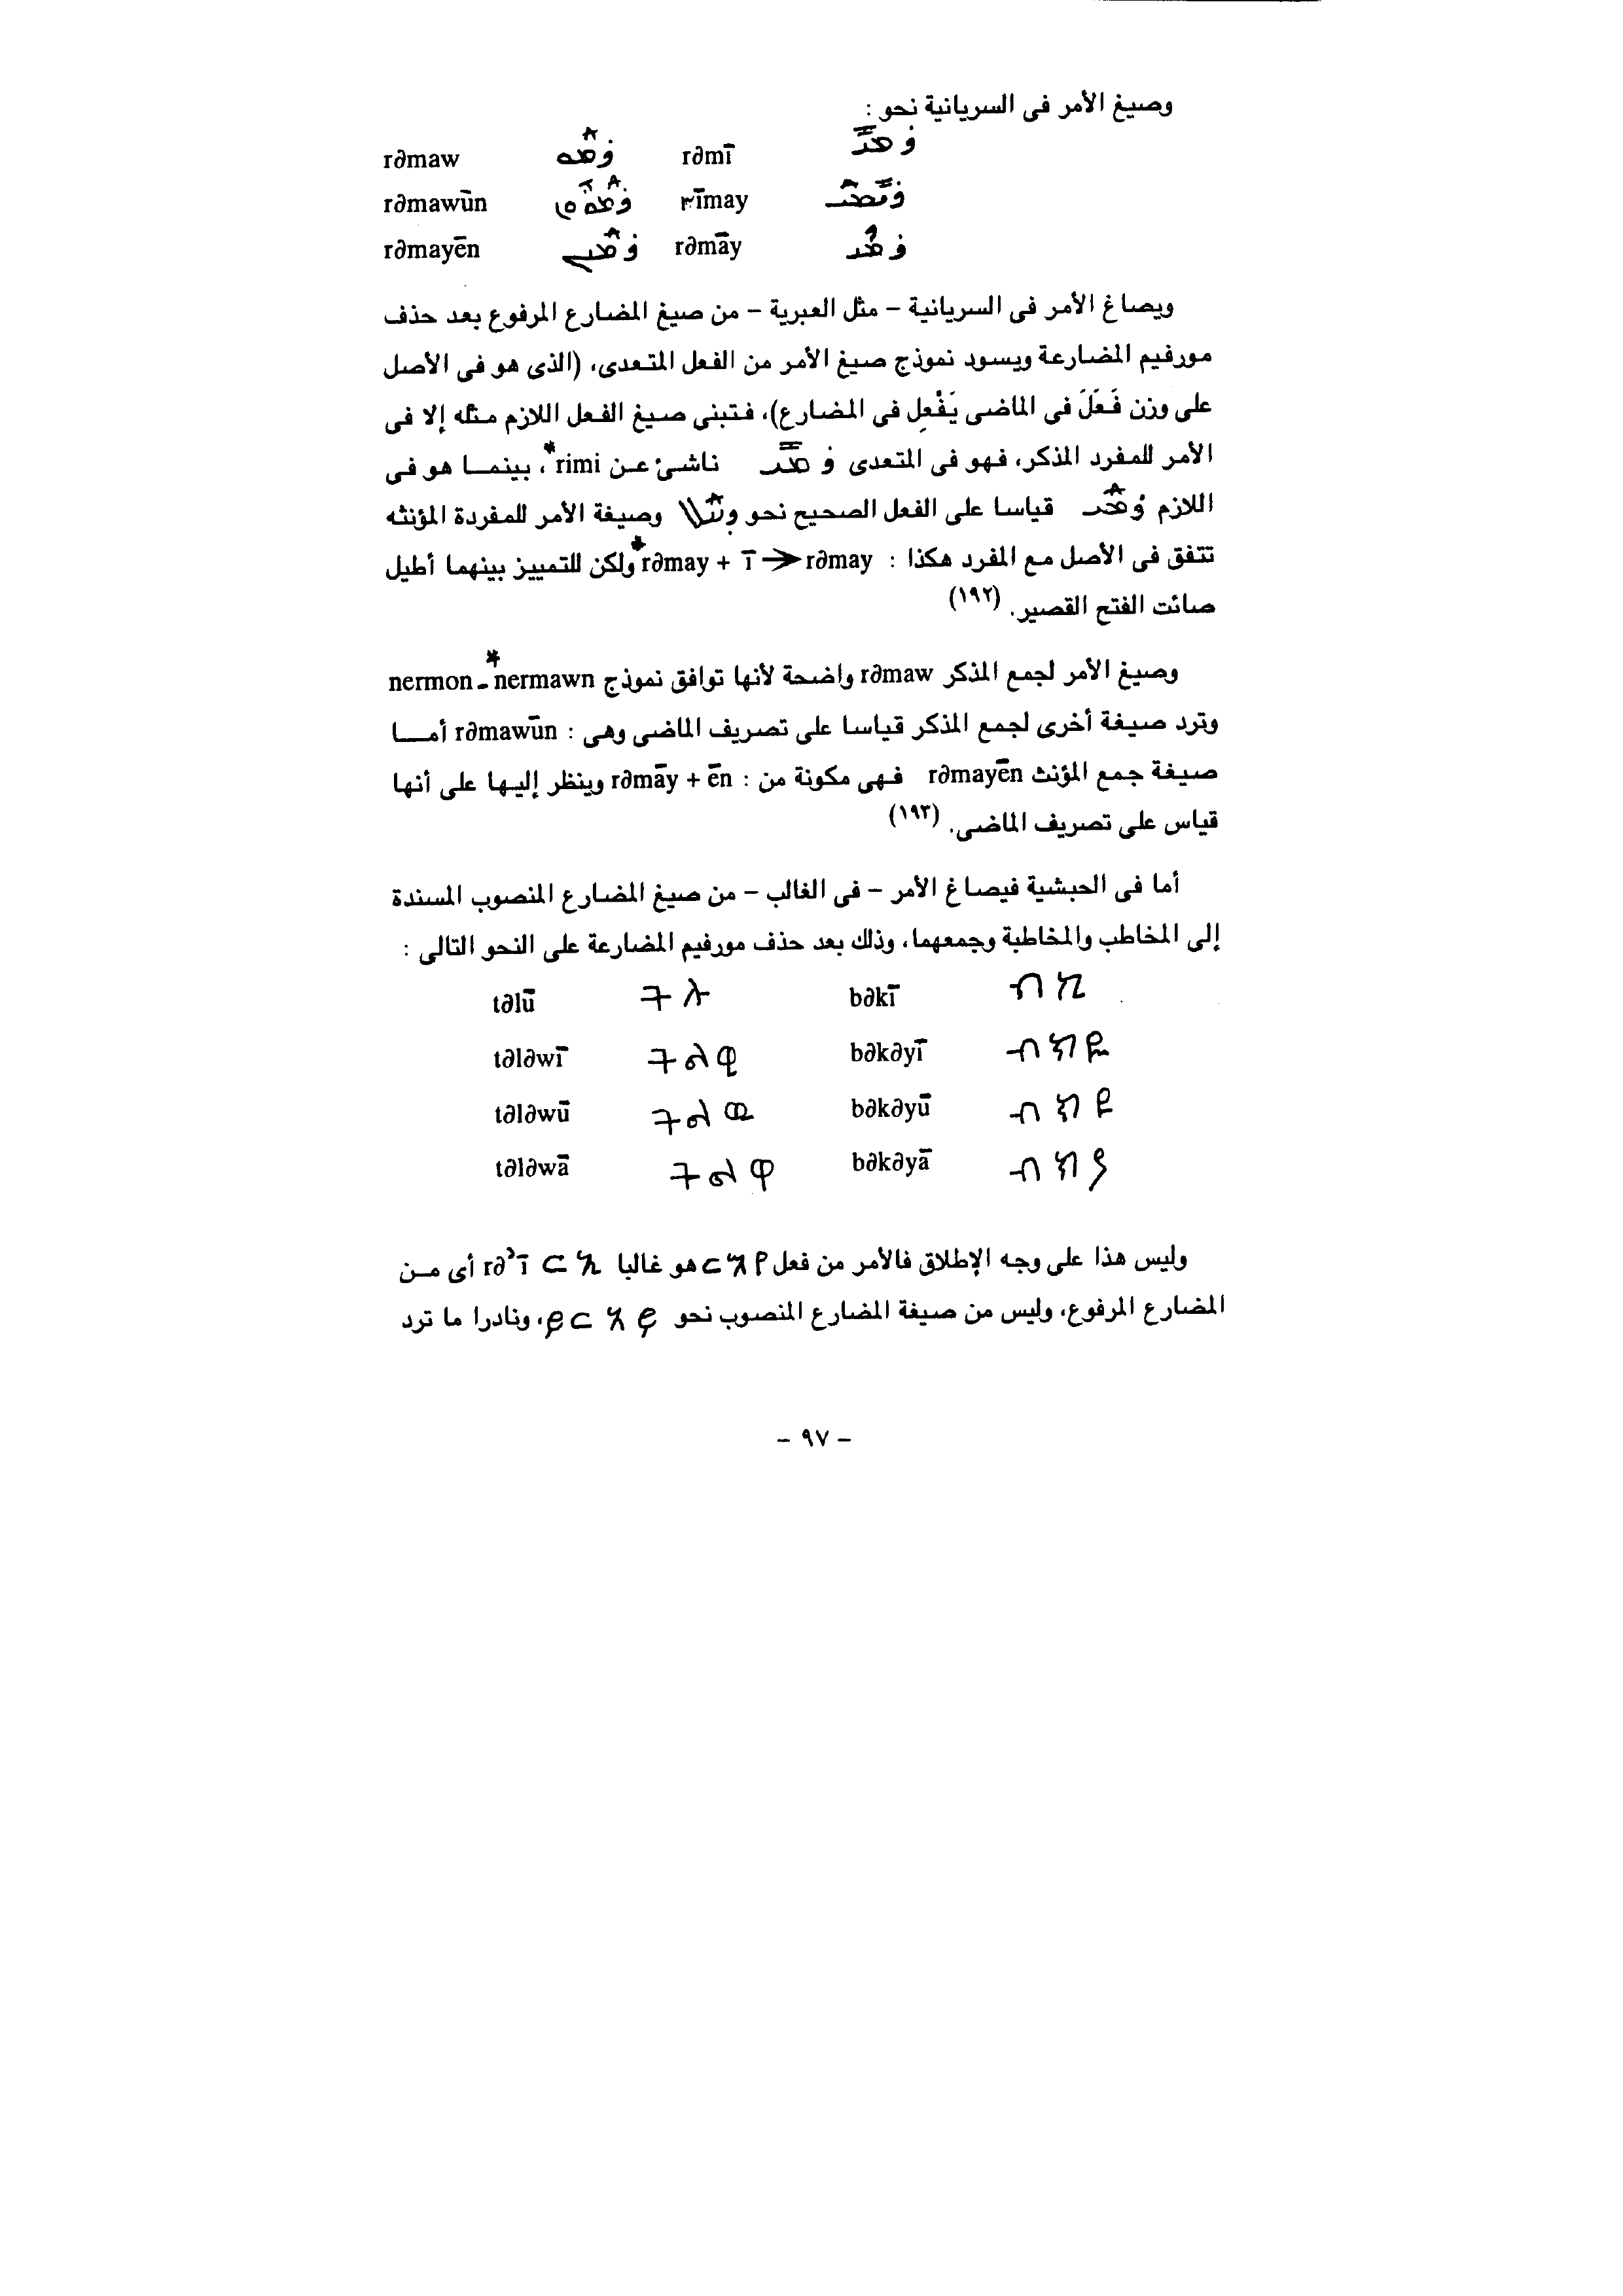 وصيغ الأمر فى السريانية نحو :
ܪܡܝ rəmī ܪܡܘ rəmaw
rīmay rəmawūn
ܪܡܝ rəmāy rəmayēn
ويصاغ الأمر فى السريانية – مثل العبرية – من صيغ المضارع المرفوع بعد حذف
مورفيم المضارعة ويسود نموذج صيغ الأمر من الفعل المتعدى، (الذى هو فى الأصل
على وزن فَعَلَ فى الماضى يَفْعِل فى المضارع)، فتبنى صيغ الفعل اللازم مثله إلا فى
الأمر للمفرد المذكر، فهو فى المتعدى ܪܡܝ ناشئ عن rimi*، بينما هو فى
اللازم قياسا على الفعل الصحيح نحو وصيغة الأمر للمفردة المؤنثه
تتفق فى الأصل مع المفرد هكذا : rəmay + ī → rəmay* ولكن للتمييز بينهما أطيل
صائت الفتح القصير. (١٩٢)
وصيغ الأمر لجمع المذكر rəmaw واضحة لأنها توافق نموذج nermon - *nermawn
وترد صيغة أخرى لجمع المذكر قياسا على تصريف الماضى وهى : rəmawūn أما
صيغة جمع المؤنث rəmayēn فهى مكونة من : rəmāy + ēn وينظر إليها على أنها
قياس على تصريف الماضى. (١٩٣)
أما فى الحبشية فيصاغ الأمر – فى الغالب – من صيغ المضارع المنصوب المسندة
إلى المخاطب والمخاطبة وجمعهما، وذلك بعد حذف مورفيم المضارعة على النحو التالى :
ብኪ bəkī ትሉ təlū
ብክዪ bəkəyī ትልዊ tələwī
ብክዩ bəkəyū ትልዉ tələwū
ብክያ bəkəyā ትልዋ tələwā
وليس هذا على وجه الإطلاق فالأمر من فعل ርእየ هو غالبا ርኢ rəʾī أى من
المضارع المرفوع، وليس من صيغة المضارع المنصوب نحو ይርአይ، ونادرا ما ترد
– ٩٧ –